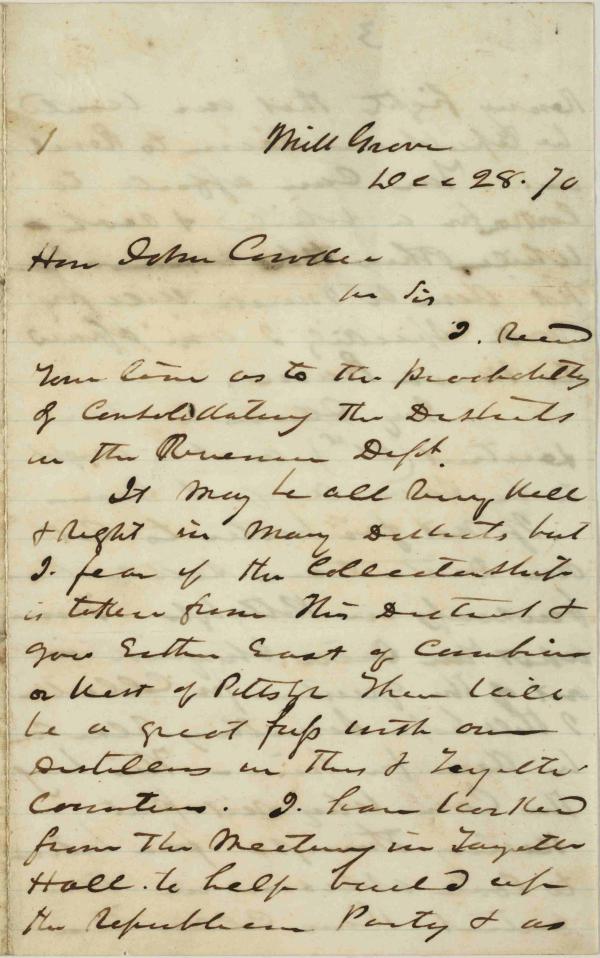 1
Mill Grove
Dec 28. 70
Hon John Covode
Dr Sir
I. Recd
Your line as to the probability
of Consolidating the Districts
in the Revenue Dept.
It may be all very well
& right in Many Districts but
I. fear if the Collectorship
is taken from this District &
goes Either East of Cambria
or West of Pittsbg There will
be a great fuss with our
Distillers in this & Fayette
Counties. I. have worked
from the Meeting in Fayette
Hall. to help build up
the Republican Party & as